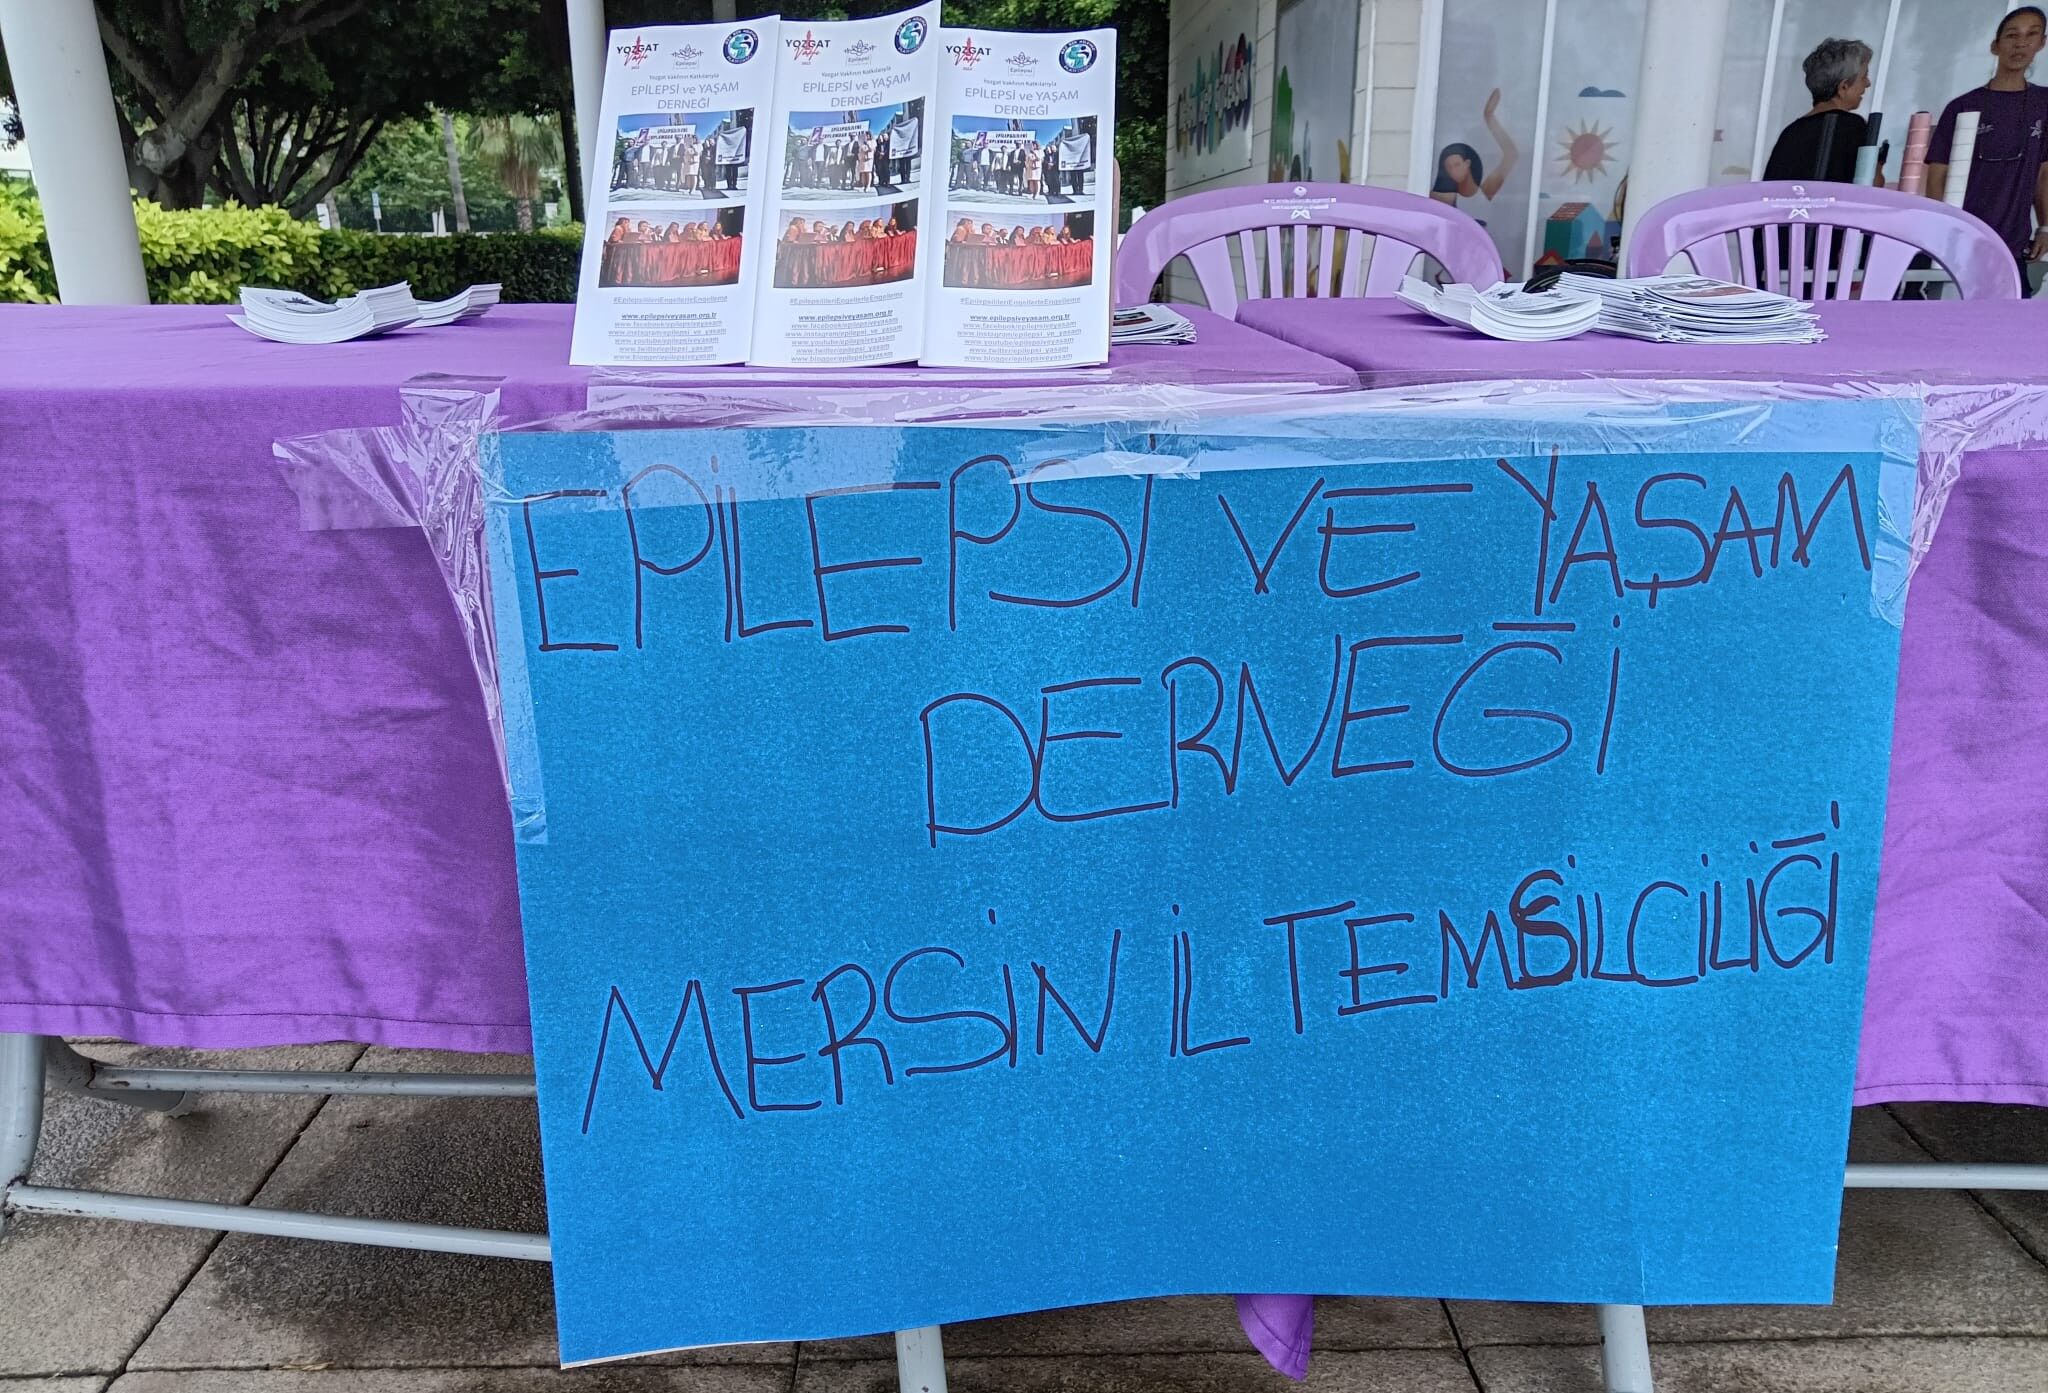 YOZGAT
Vakfı
Epilepsi
Yozgat Vakfının Katkılarıyla
EPİLEPSİ ve YAŞAM
DERNEĞİ
#EpilepsilileriEngellerleEngelleme
www.epilepsiveyasam.org.tr
www.facebook/epilepsiveyasam
www.instagram/epilepsi_ve_yasam
www.youtube/epilepsiveyasam
www.twitter/epilepsi_yasam
www.blogger/epilepsiveyasam
YOZGAT
Vakfı
Epilepsi
Yozgat Vakfının Katkılarıyla
EPİLEPSİ ve YAŞAM
DERNEĞİ
#EpilepsilileriEngellerleEngelleme
www.epilepsiveyasam.org.tr
www.facebook/epilepsiveyasam
www.instagram/epilepsi_ve_yasam
www.youtube/epilepsiveyasam
www.twitter/epilepsi_yasam
www.blogger/epilepsiveyasam
YOZGAT
Vakfı
Epilepsi
Yozgat Vakfının Katkılarıyla
EPİLEPSİ ve YAŞAM
DERNEĞİ
#EpilepsilileriEngellerleEngelleme
www.epilepsiveyasam.org.tr
www.facebook/epilepsiveyasam
www.instagram/epilepsi_ve_yasam
www.youtube/epilepsiveyasam
www.twitter/epilepsi_yasam
www.blogger/epilepsiveyasam
EPİLEPSİ VE YAŞAM
DERNEĞİ
MERSİN İL TEMSİLCİLİĞİ